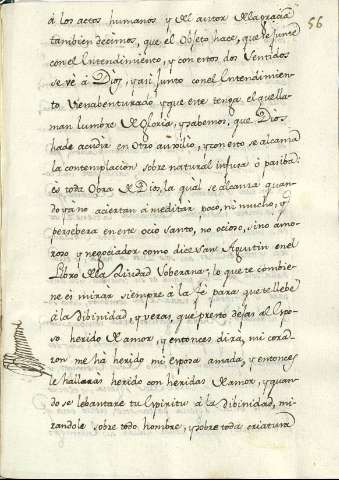 56
á los actos humanos y del autor de la gracia
tambien decimos, que el Objeto hace, que se junte
con el Entendimiento, y con estos dos Sentidos
se vè à Dios, y assi junto con el Entendimien
to Venabenturado, y que este tenga el que lla
man lumbre de Gloria, y sabemos, que Dios
hade acudir en otro auxilio, y con esto se alcansa
la contemplación sobre natural infusa ò pasiba:
es toda Obra de Dios, la qual se alcansa quan
do ya no aciertan à meditar poco, ni mucho, y
persebera en este ocio santo, no ocioso, sino amo
roso y negociador como dice San Agustin en el
Libro de la Ciudad Soberana; lo que te combie
ne es mirar siempre à la fè para que te llebe
à la dibinidad, y veras, que presto dejas al Espo
so herido de amor, y entonces dira, mi cora
zon me hà herido mi esposa amada, y entonces
le hallaras herido con heridas de amor, y quan
do se lebantare tu Espiritu à la dibinidad, mi
randole sobre todo hombre, y sobre toda criatura